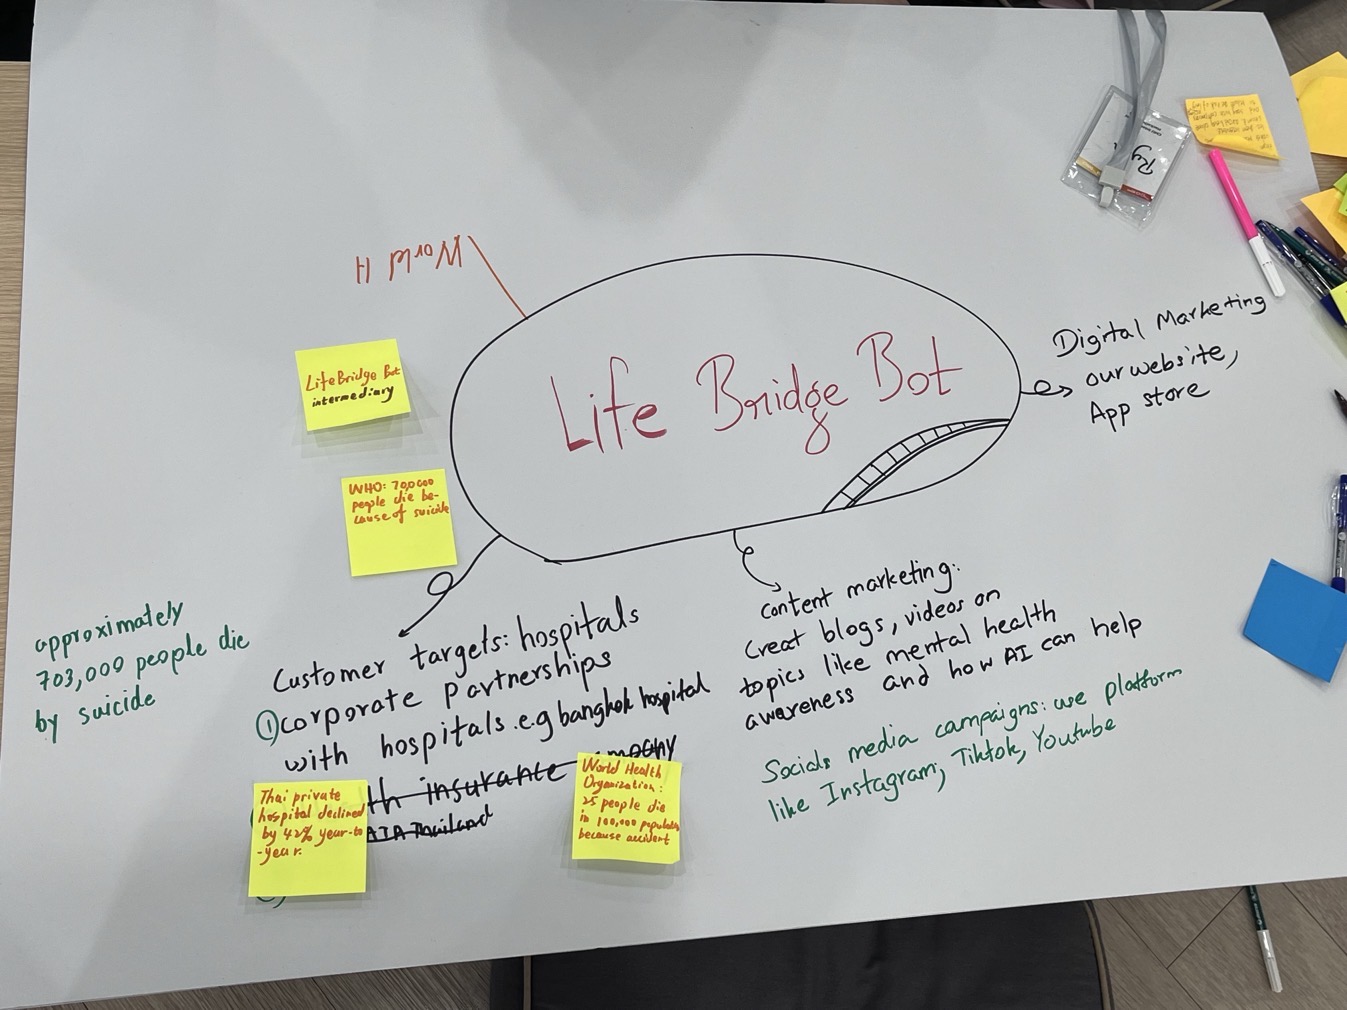 World H
Life Bridge Bot
intermediary
WHO: 70,000
people die be-
cause of suicide
Life Bridge Bot
Digital Marketing
our website,
App store
approximately
703,000 people die
by suicide
Customer targets: hospitals
①corporate partnerships
with hospitals. e.g bangkok hospital
th insurance mpany
AIA Thailand
Thai private
hospital declined
by 42% year-to
-year.
World Health
Organization:
25 people die
in 100,000 population
because accident
content marketing:
Creat blogs, videos on
topics like mental health
awareness and how AI can help
Socials media campaigns: use platform
like Instagram, Tiktok, Youtube
Ry